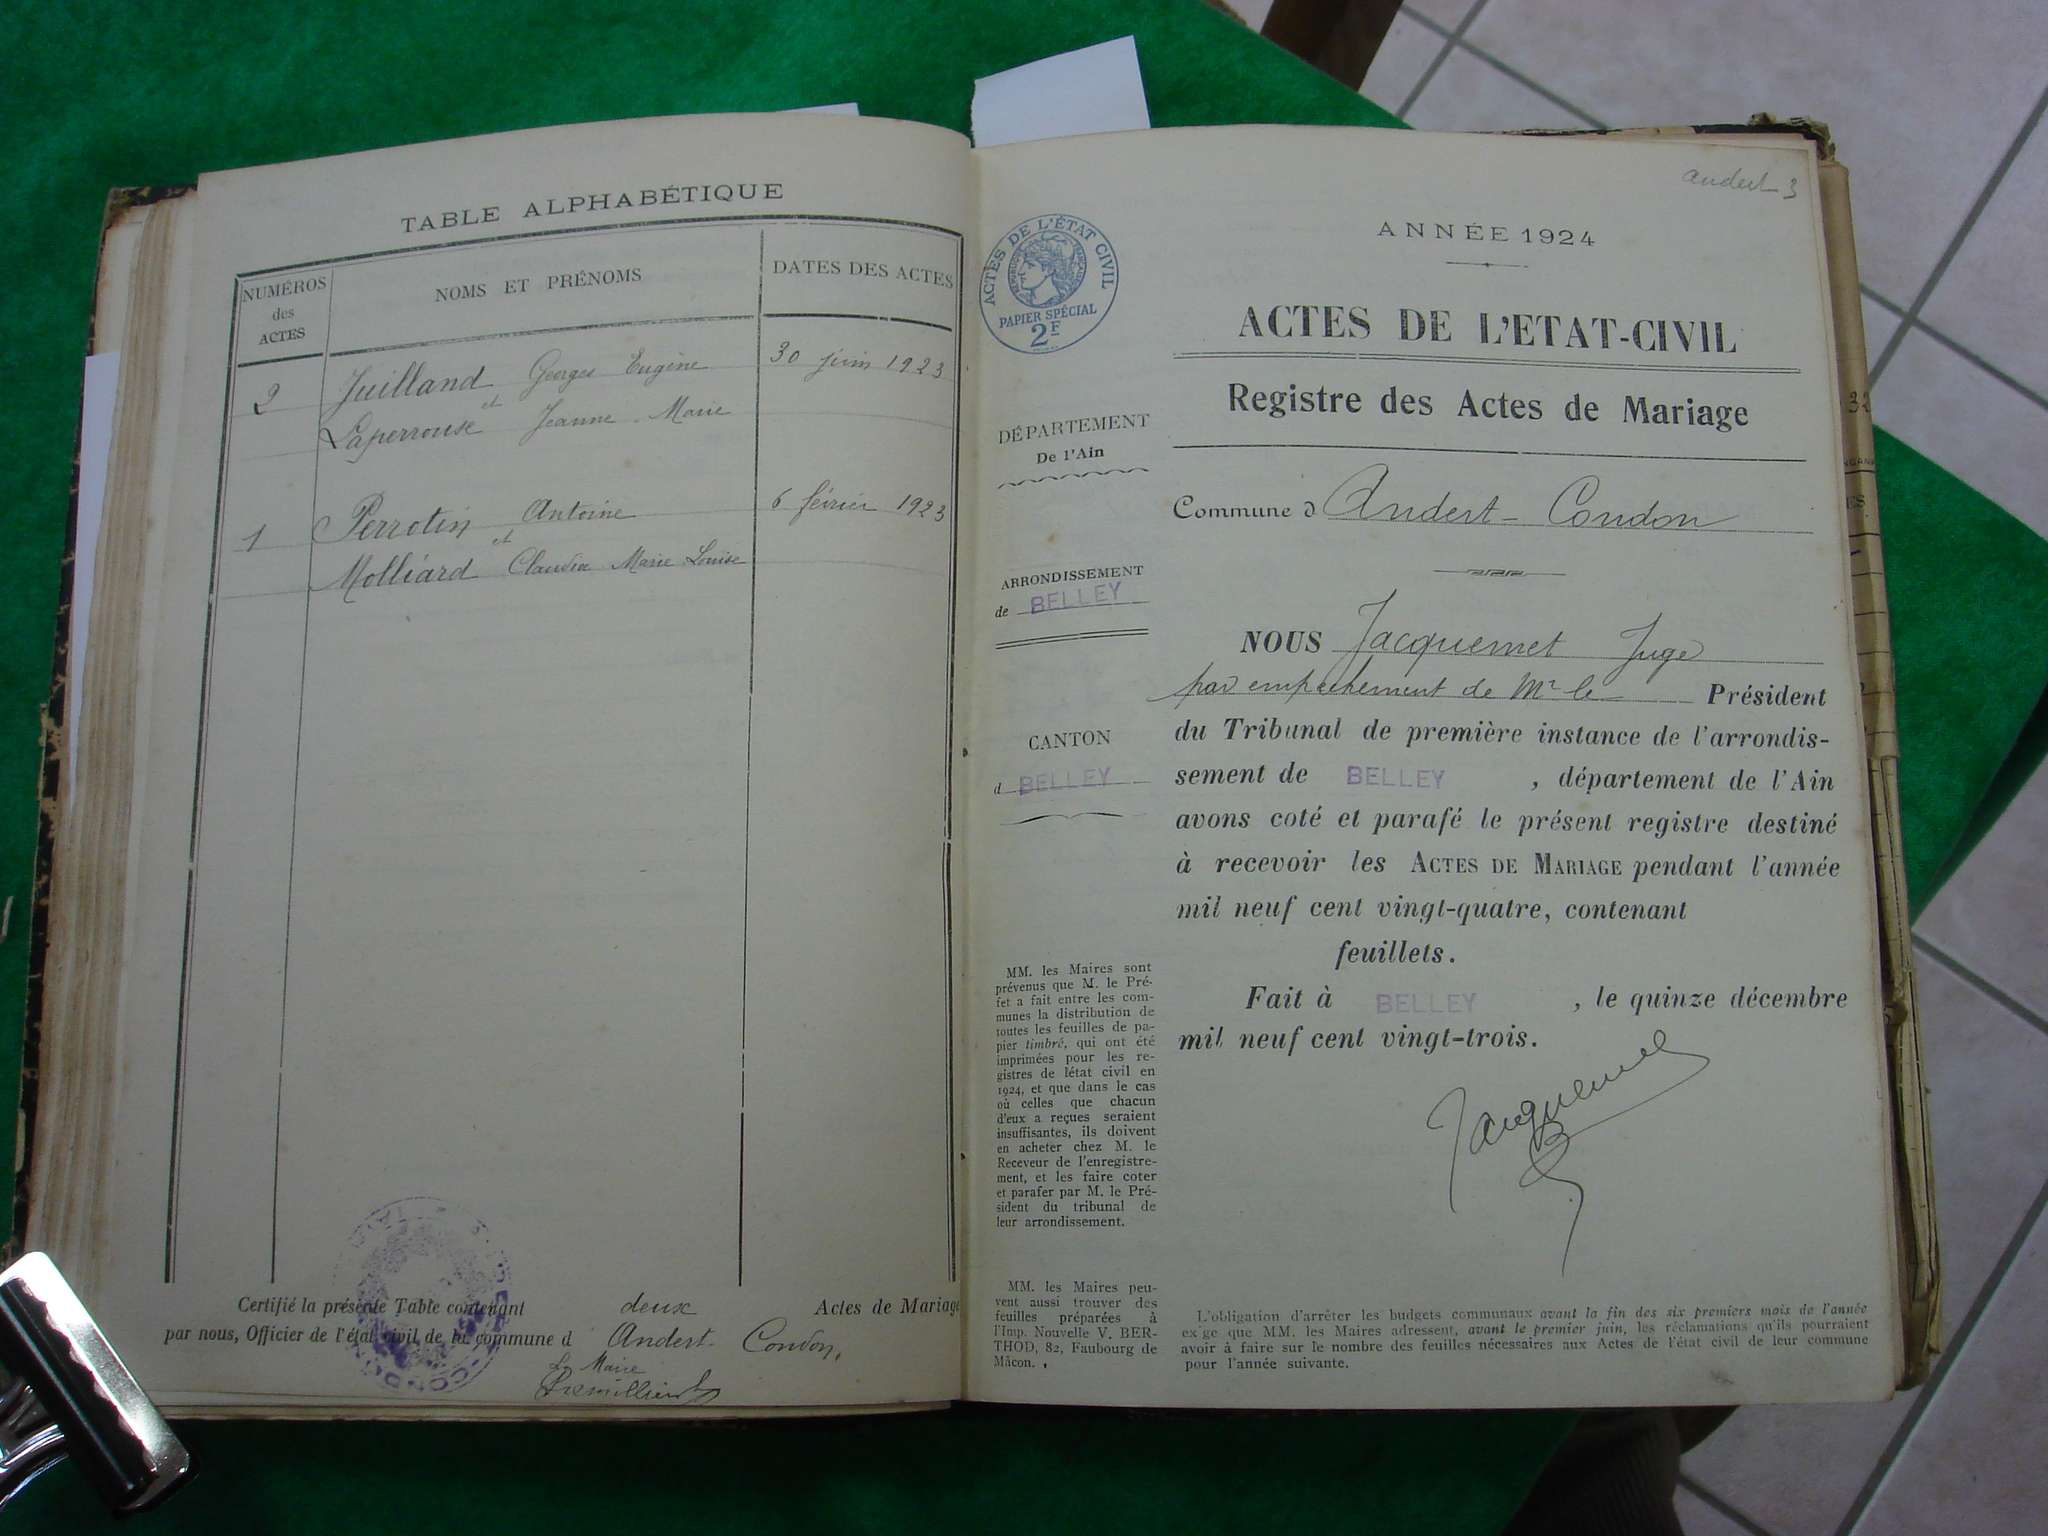 TABLE ALPHABÉTIQUE
NUMÉROS des ACTES
NOMS ET PRÉNOMS
DATES DES ACTES
2 Juilland Georges Eugène 30 juin 1923
et
Laperrouse Jeanne Marie
1 Perrotin Antoine 6 février 1923
et
Molliard Claudia Marie Louise
Certifié la présente Table contenant deux Actes de Mariage
par nous, Officier de l'état civil de la commune d Andert-Condon.
Le Maire
andert 3
ANNÉE 1924
ACTES DE L'ÉTAT CIVIL
RÉPUBLIQUE FRANÇAISE
PAPIER SPÉCIAL
2F
ACTES DE L'ETAT-CIVIL
Registre des Actes de Mariage
DÉPARTEMENT
De l'Ain
Commune d Andert-Condon
ARRONDISSEMENT
de BELLEY
CANTON
d BELLEY
NOUS Jacquemet Juge
par empechement de Mr le Président
du Tribunal de première instance de l'arrondis-
sement de BELLEY , département de l'Ain
avons coté et parafé le présent registre destiné
à recevoir les ACTES DE MARIAGE pendant l'année
mil neuf cent vingt-quatre, contenant
feuillets.
Fait à BELLEY , le quinze décembre
mil neuf cent vingt-trois.
Jacquemet
MM. les Maires sont
prévenus que M. le Pré-
fet a fait entre les com-
munes la distribution de
toutes les feuilles de pa-
pier timbré, qui ont été
imprimées pour les re-
gistres de létat civil en
1924, et que dans le cas
où celles que chacun
d'eux a reçues seraient
insuffisantes, ils doivent
en acheter chez M. le
Receveur de l'enregistre-
ment, et les faire coter
et parafer par M. le Pré-
sident du tribunal de
leur arrondissement.
MM. les Maires peu-
vent aussi trouver des
feuilles préparées à
l'Imp. Nouvelle V. BER-
THOD, 82, Faubourg de
Mâcon.
L'obligation d'arrêter les budgets communaux avant la fin des six premiers mois de l'année
exige que MM. les Maires adressent, avant le premier juin, les réclamations qu'ils pourraient
avoir à faire sur le nombre des feuilles nécessaires aux Actes de l'état civil de leur commune
pour l'année suivante.